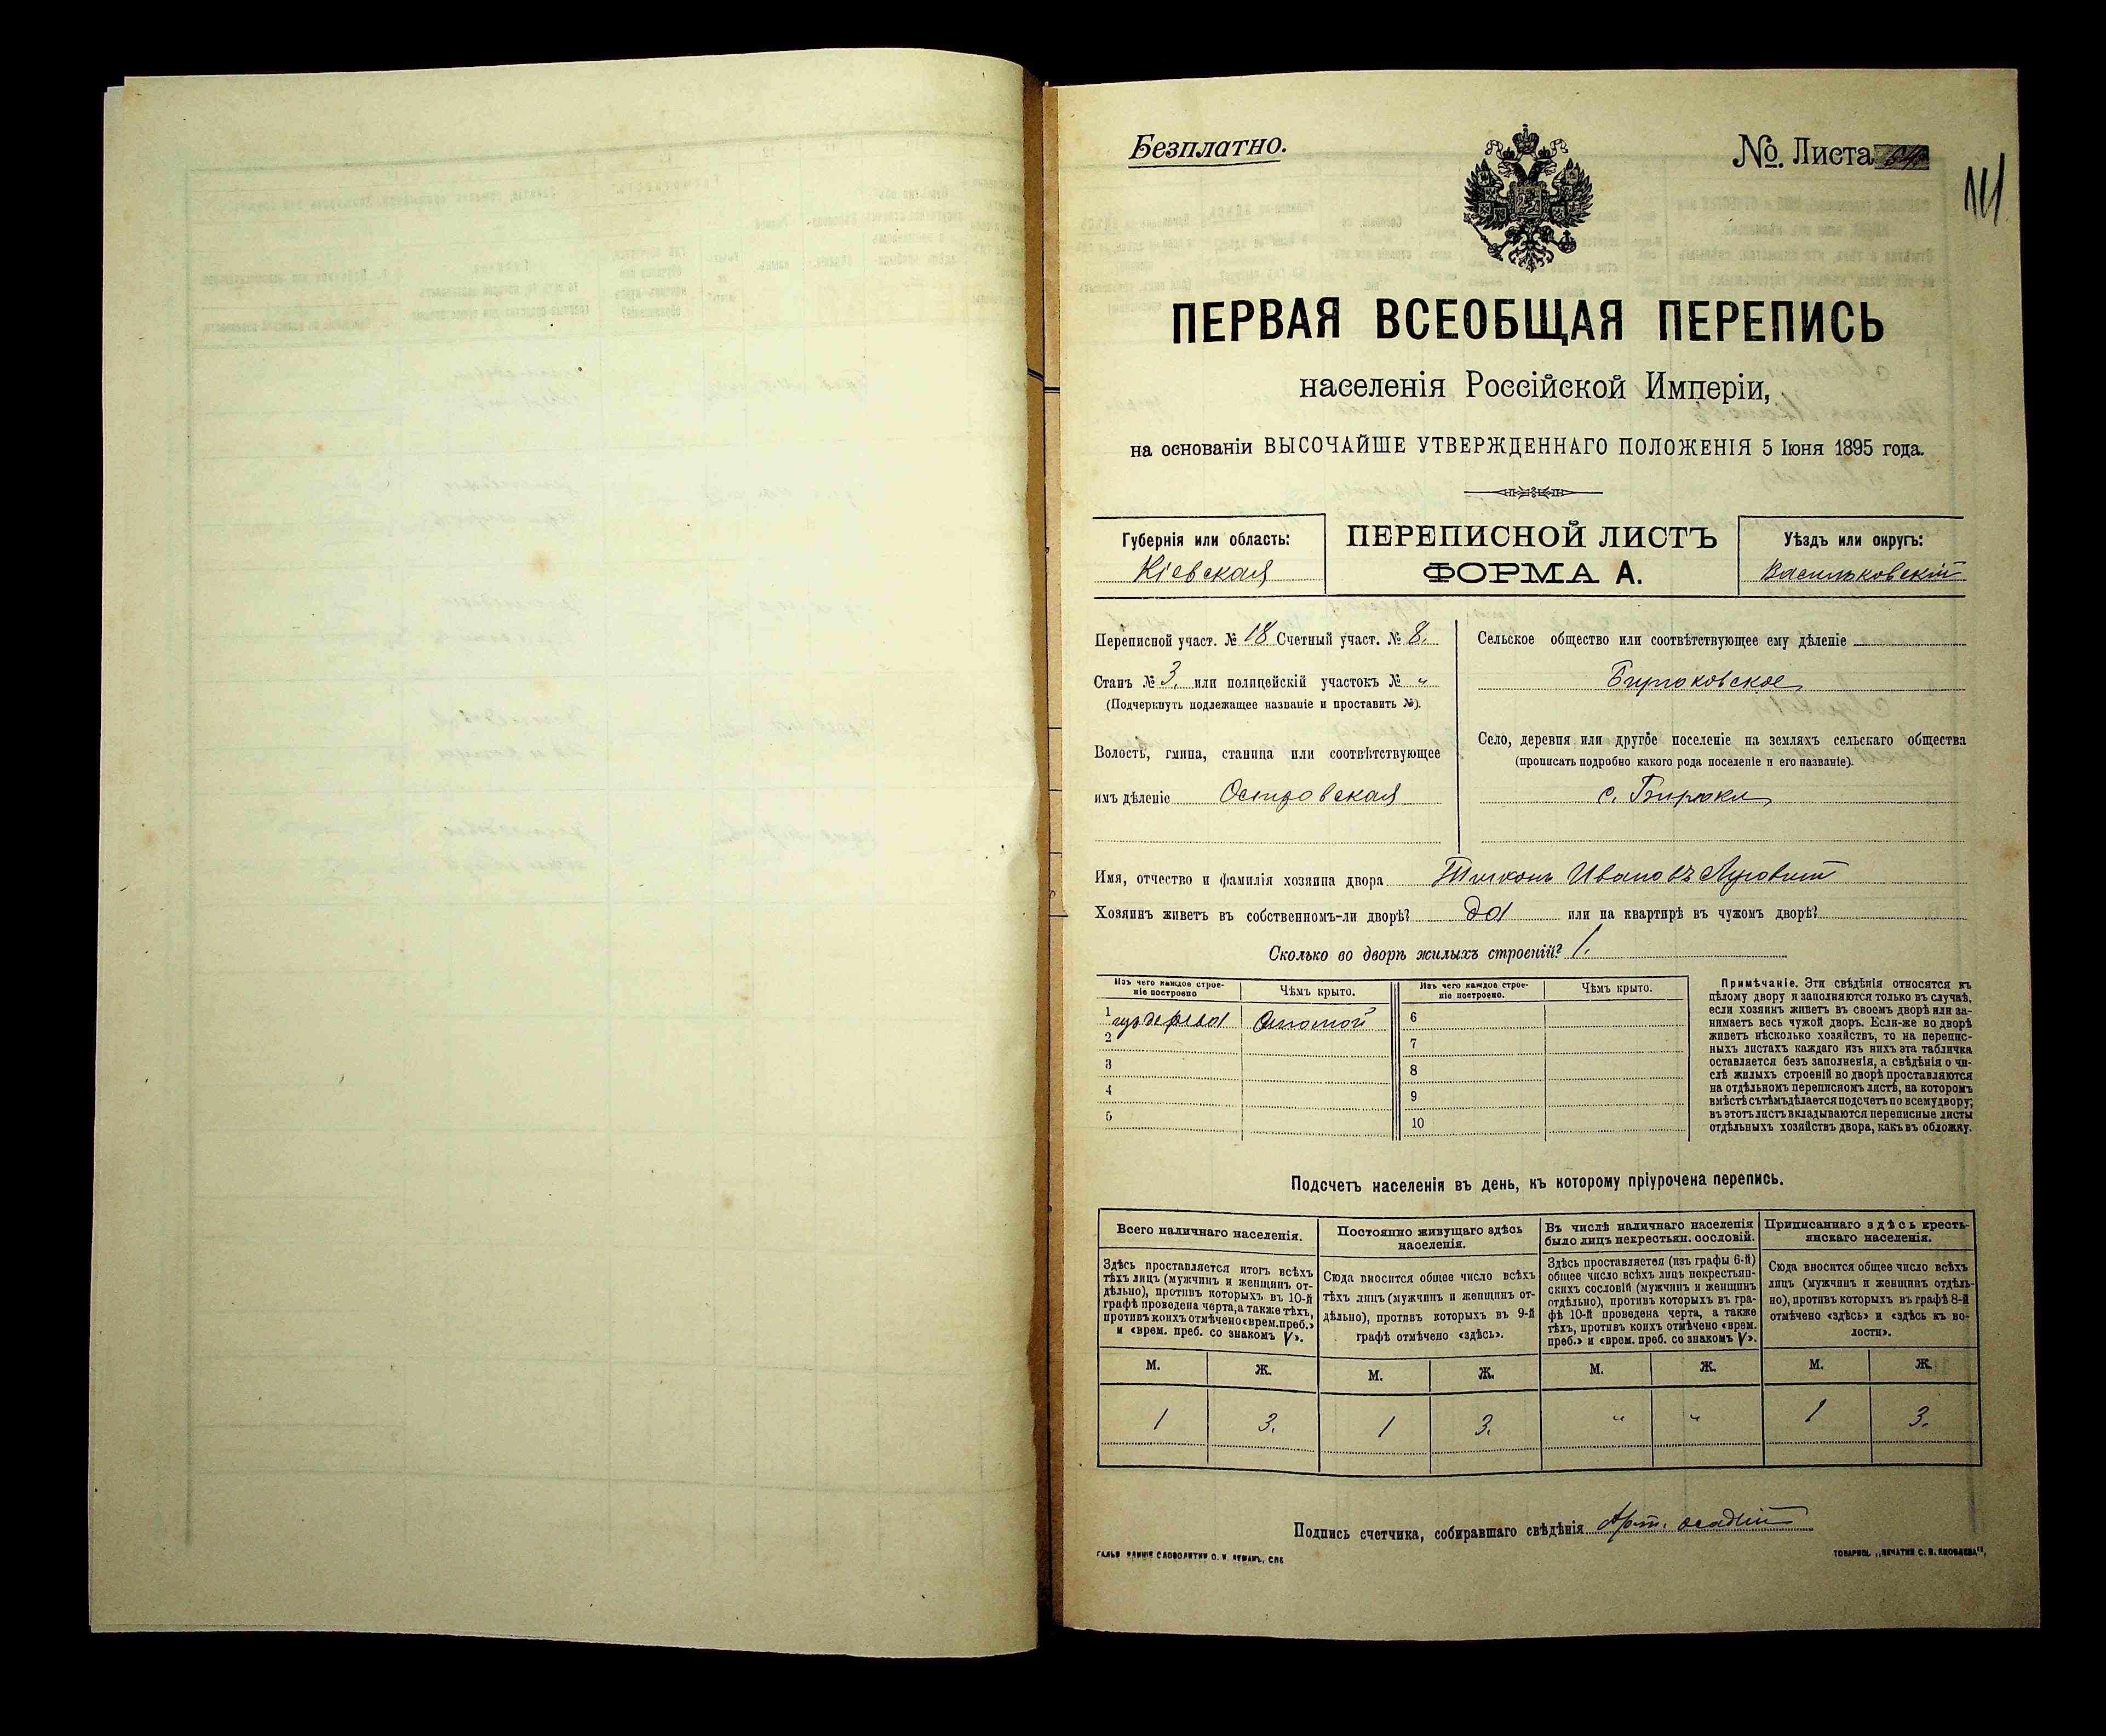 Безплатно.
№ Листа 64
111
ПЕРВАЯ ВСЕОБЩАЯ ПЕРЕПИСЬ
населенія Россійской Имперіи,
на основаніи ВЫСОЧАЙШЕ УТВЕРЖДЕННАГО ПОЛОЖЕНІЯ 5 Іюня 1895 года.
Губернія или область:
Кіевская
ПЕРЕПИСНОЙ ЛИСТЪ
ФОРМА А.
Уѣздъ или округъ:
Васильковскій
Переписной участ. № 18 Счетный участ. № 8.
Станъ № 3. или полицейскій участокъ № "
(Подчеркнуть подлежащее названіе и проставить №).
Волость, гмина, станица или соотвѣтствующее
имъ дѣленіе
Сельское общество или соотвѣтствующее ему дѣленіе
Бирюковское
Село, деревня или другое поселеніе на земляхъ сельскаго общества
(прописать подробно какого рода поселеніе и его названіе).
с. Бирюки
Имя, отчество и фамилія хозяина двора Тихонъ Ивановъ
Хозяинъ живетъ въ собственномъ-ли дворѣ? да или на квартирѣ въ чужомъ дворѣ?
Сколько во дворѣ жилыхъ строеній? 1.
Изъ чего каждое строе-
ніе построено
Чѣмъ крыто.
Изъ чего каждое строе-
ніе построено.
Чѣмъ крыто.
1 изъ дерева Соломой
2
3
4
5
6
7
8
9
10
Примѣчаніе. Эти свѣдѣнія относятся къ
цѣлому двору и заполняются только въ случаѣ,
если хозяинъ живетъ въ своемъ дворѣ или за-
нимаетъ весь чужой дворъ. Если-же во дворѣ
живетъ нѣсколько хозяйствъ, то на перепис-
ныхъ листахъ каждаго изъ нихъ эта табличка
оставляется безъ заполненія, а свѣдѣнія о чи-
слѣ жилыхъ строеній во дворѣ проставляются
на отдѣльномъ переписномъ листѣ, на которомъ
вмѣстѣ съ тѣмъ дѣлается подсчетъ по всему двору;
въ этотъ листъ вкладываются переписные листы
отдѣльныхъ хозяйствъ двора, какъ въ обложку.
Подсчетъ населенія въ день, къ которому пріурочена перепись.
Всего наличнаго населенія.
Здѣсь проставляется итогъ всѣхъ
тѣхъ лицъ (мужчинъ и женщинъ от-
дѣльно), противъ которыхъ въ 10-й
графѣ проведена черта, а также тѣхъ,
противъ коихъ отмѣчено «врем. преб.»
и «врем. преб. со знакомъ V».
М. Ж.
1 3.
Постоянно живущаго здѣсь
населенія.
Сюда вносится общее число всѣхъ
тѣхъ лицъ (мужчинъ и женщинъ от-
дѣльно), противъ которыхъ въ 9-й
графѣ отмѣчено «здѣсь».
М. Ж.
1 3.
Въ числѣ наличнаго населенія
было лицъ некрестьян. сословій.
Здѣсь проставляется (изъ графы 6-й)
общее число всѣхъ лицъ некрестьян-
скихъ сословій (мужчинъ и женщинъ
отдѣльно), противъ которыхъ въ гра-
фѣ 10-й проведена черта, а также
тѣхъ, противъ коихъ отмѣчено «врем.
преб.» и «врем. преб. со знакомъ V».
М. Ж.
" "
Приписаннаго здѣсь кресть-
янскаго населенія.
Сюда вносится общее число всѣхъ
лицъ (мужчинъ и женщинъ отдѣль-
но), противъ которыхъ въ графѣ 8-й
отмѣчено «здѣсь» и «здѣсь къ во-
лости».
М. Ж.
1 3.
Подпись счетчика, собиравшаго свѣдѣнія Арт. Осадчій
ТОВАРИЩ. „ПЕЧАТНЯ С. П. ЯКОВЛЕВА“,